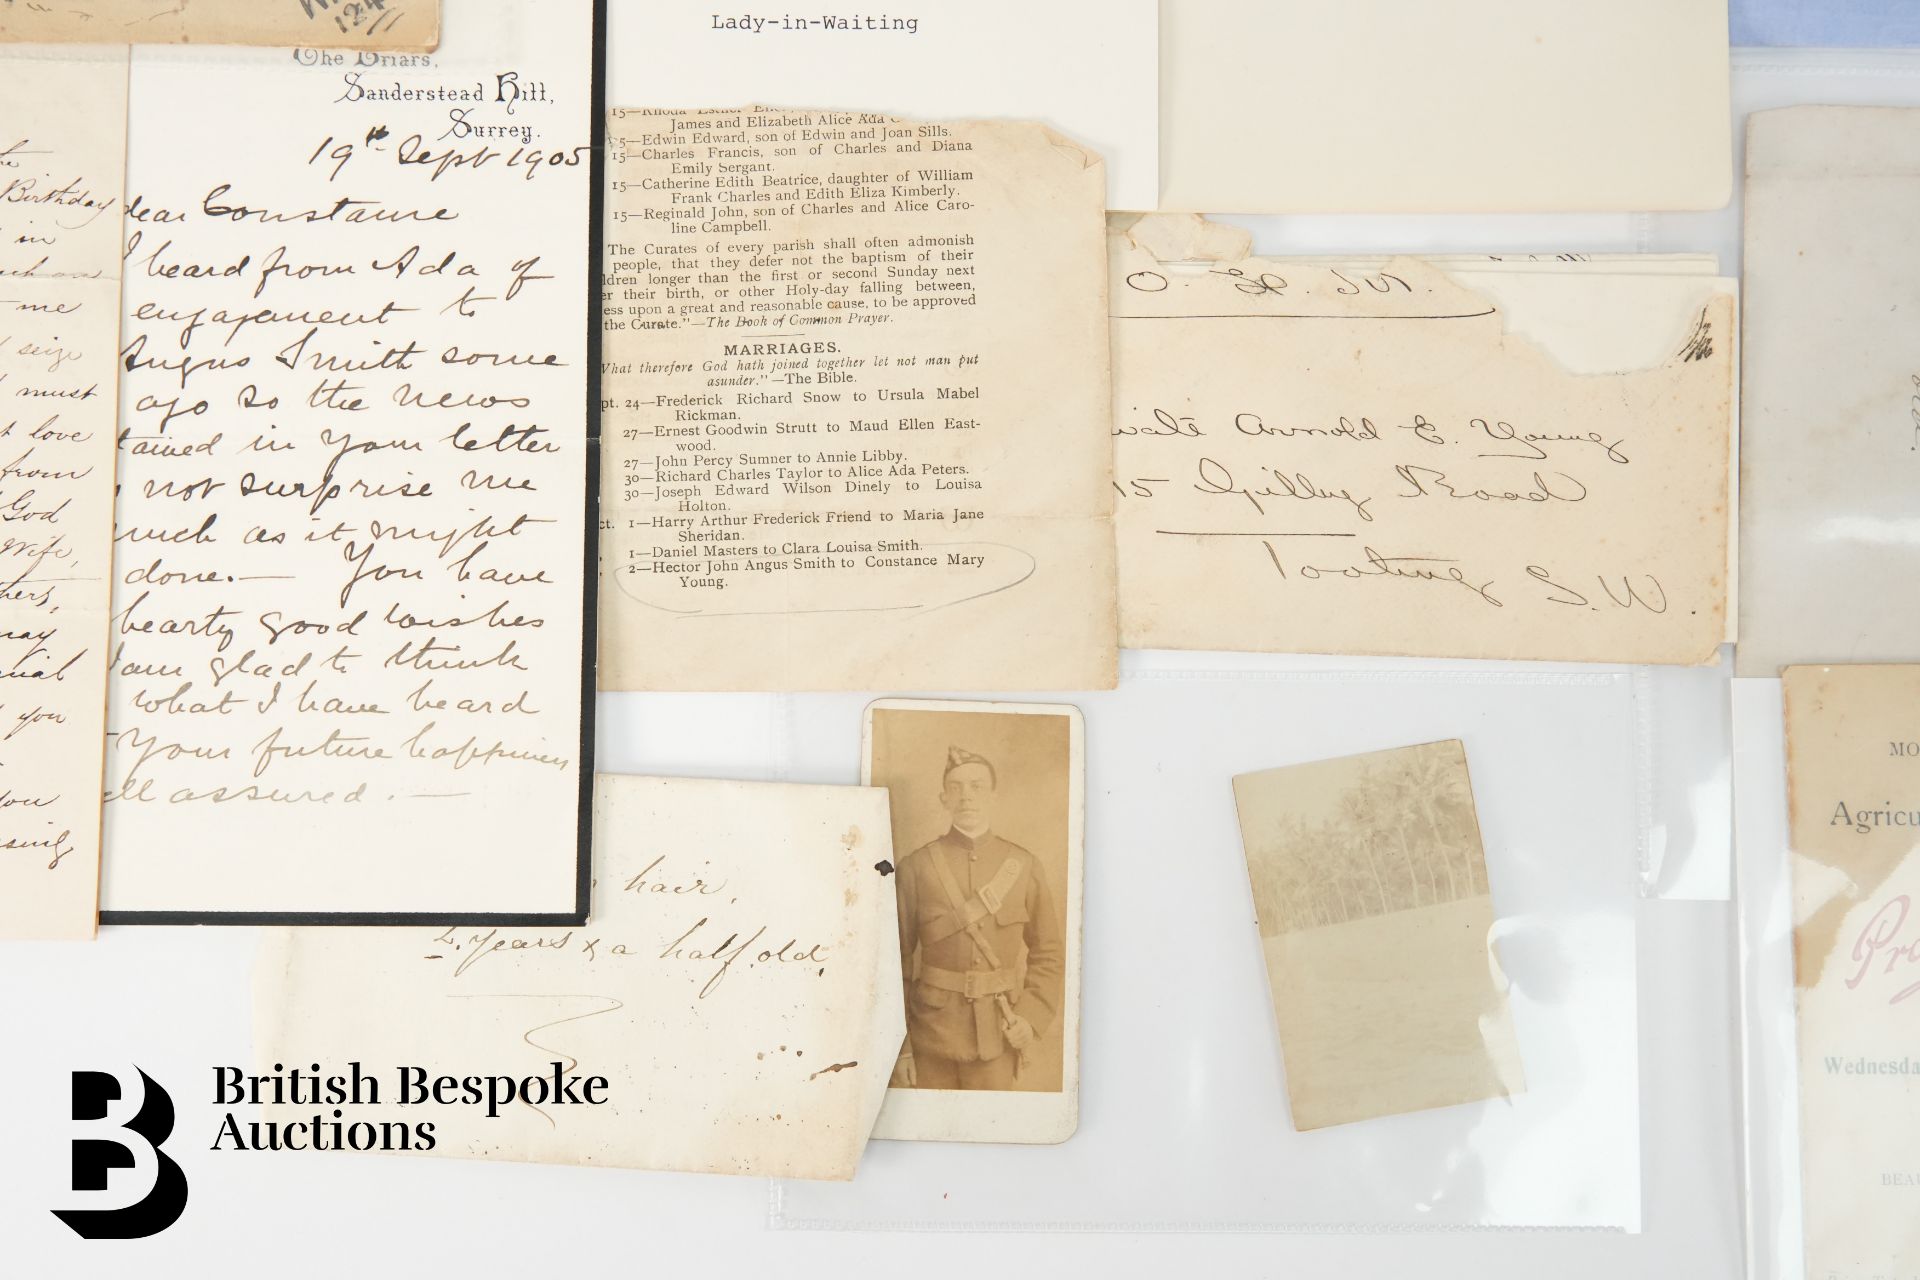 12411
The Briars,
Sanderstead Hill,
Surrey.
19th Sept 1905
dear Constance
I heard from Ada of
engagement to
Angus Smith some
ago so the news
tained in your letter
not surprise me
much as it might
done.— You have
hearty good wishes
I am glad to think
what I have heard
Your future happiness
ll assured.—
the
Birthday
in
me
seize
must
love
from
God
Wife,
hers,
may
you
you
Lady-in-Waiting
James and Elizabeth Alice Ada C
5—Edwin Edward, son of Edwin and Joan Sills.
15—Charles Francis, son of Charles and Diana
Emily Sergant.
15—Catherine Edith Beatrice, daughter of William
Frank Charles and Edith Eliza Kimberly.
15—Reginald John, son of Charles and Alice Caro-
line Campbell.
The Curates of every parish shall often admonish
people, that they defer not the baptism of their
ldren longer than the first or second Sunday next
er their birth, or other Holy-day falling between,
ess upon a great and reasonable cause, to be approved
the Curate."—The Book of Common Prayer.
MARRIAGES.
What therefore God hath joined together let not man put
asunder."—The Bible.
pt. 24—Frederick Richard Snow to Ursula Mabel
Rickman.
27—Ernest Goodwin Strutt to Maud Ellen East-
wood.
27—John Percy Sumner to Annie Libby.
30—Richard Charles Taylor to Alice Ada Peters.
30—Joseph Edward Wilson Dinely to Louisa
Holton.
ct. 1—Harry Arthur Frederick Friend to Maria Jane
Sheridan.
1—Daniel Masters to Clara Louisa Smith.
2—Hector John Angus Smith to Constance Mary
Young.
O. H. M.
ivate Arnold E. Young
15 Gilbey Road
Tooting S.W.
hair,
2 years & a half old,
MO
Agricu
Pro
Wednesda
BEAU
British Bespoke
Auctions